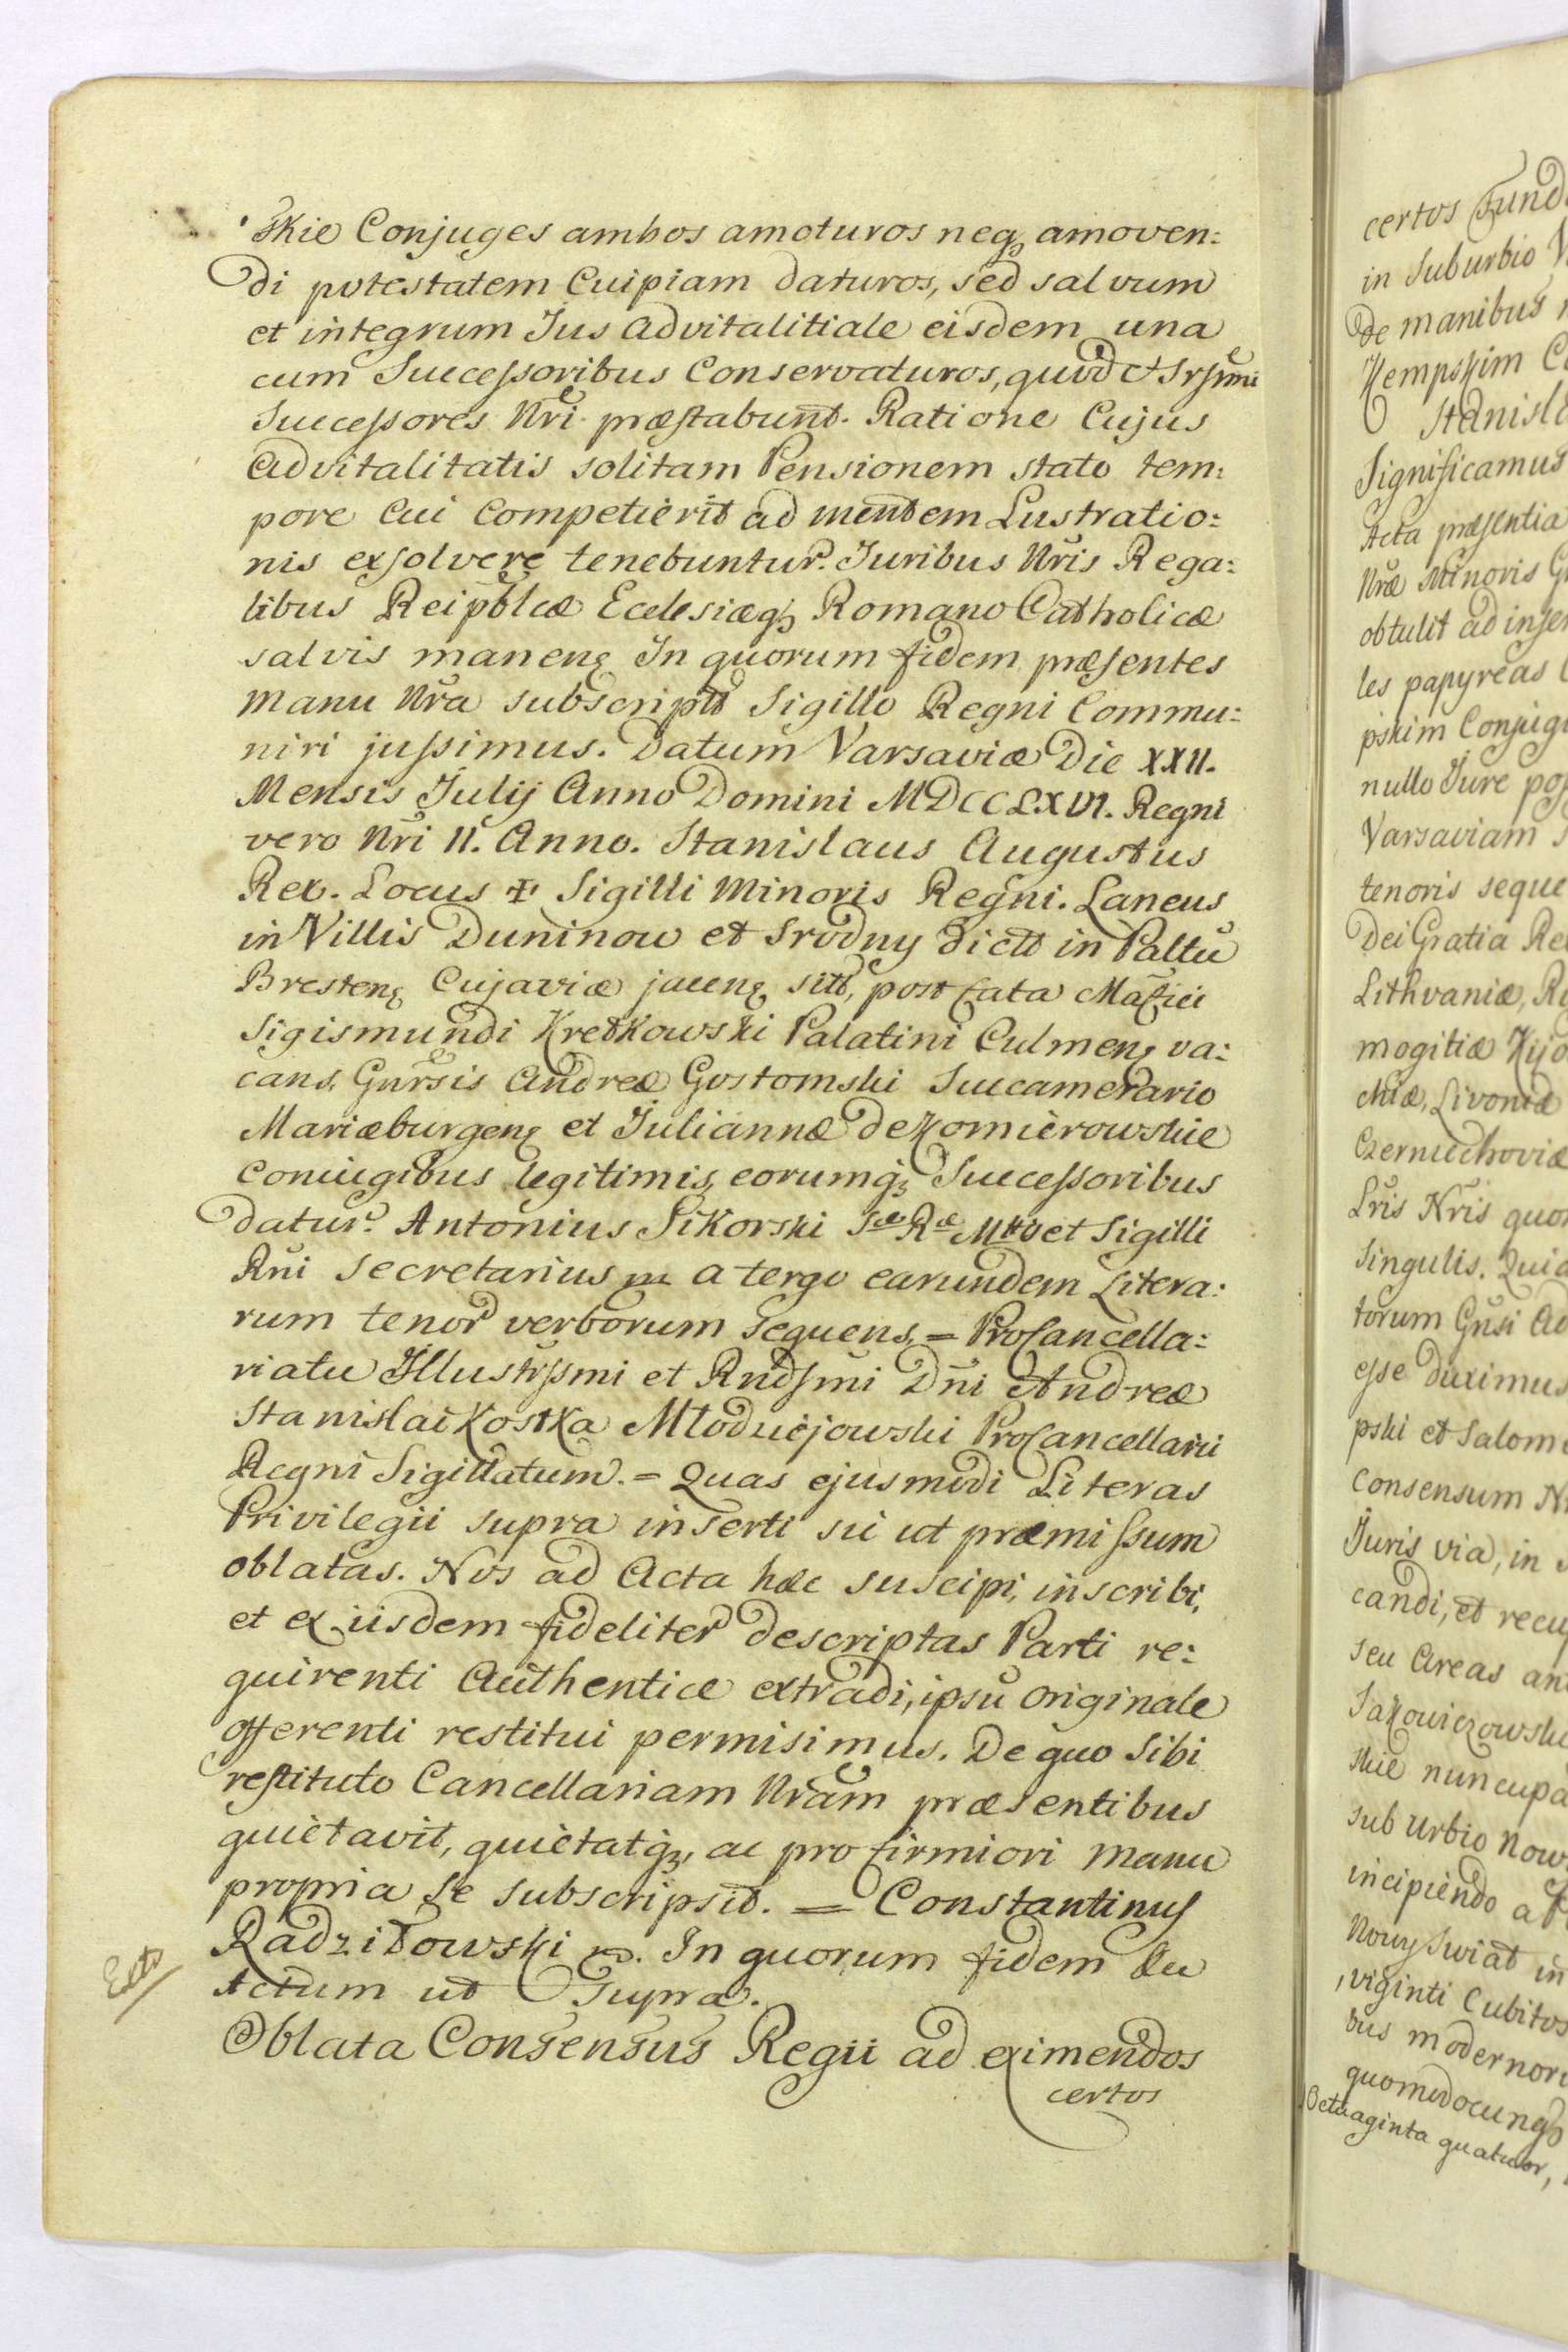 skie Conjuges ambos amoturos neq, amoven:
di potestatem Cuipiam daturos, sed salvum
et integrum Jus advitalitiale eisdem una
cum Successoribus Conservaturos, quod et Srssmi
Successores Nri præstabunt. Ratione Cujus
advitalitatis solitam Pensionem stato tem:
pore cui Competierit ad mentem Lustratio:
nis exsolvere tenebuntur. Juribus Nris Rega:
libus Reipblcæ Eclesiæq; Romano Catholicæ
salvis manenς In quorum fidem præsentes
manu Nra subscriptt Sigillo Regni Commu:
niri jussimus. Datum Varsaviæ Die XXII.
Mensis Julij Anno Domini MDCCLXVI. Regni
vero Nri II. Anno. Stanislaus Augustus
Rex. Locus ✠ Sigilli Minoris Regni. Laneus
in Villis Duninow et Srodny dictt in Paltu
Brestenς Cujaviæ jacenς sitt, post fata Mafici
Sigismundi Kretkowski Palatini Culmenς va:
cans. Gnrsis Andreæ Gostomski Succamerario
Mariæburgenς et Juliannæ de Komierowskie
coniugibus legitimis, eorumq; Successoribus
datur. Antonius Sikorski Sæ Ræ Mttis et Sigilli
Rni Secretarius m a tergo earundem Litera:
rum tenor verborum Sequens, = ProCancella:
riatu Illustrssmi et Rndssmi Dni Andreæ
Stanislai Kostka Młodziejowski ProCancellarii
Regni Sigillatum. = Quas ejusmodi Literas
Privilegii supra inserti sic ut præmissum
oblatas. Nos ad Acta hæc suscipi, inscribi,
et ex iisdem fideliter descriptas Parti re:
quirenti Authentice extradi, ipsu Originale
offerenti restitui permisimus. De quo Sibi
restituto Cancellariam Nram præsentibus
quietavit, quietatq;, ac pro firmiori manu
propria se subscripsit. = Constantinus
Radziłowski m. In quorum fidem &c
Actum ut Supra.
Oblata Consensus Regii ad eximendos
certos
certos Fund
in Suburbio
de manibus
Kempskim
Stanisl
Significamus
Acta præsentia
Nræ Minoris
obtulit ad inser
les papyreas
pskim Conjug
nullo Jure pos
Varsaviam
tenoris seque
Dei Gratia Re
Lithvaniæ,
mogitiæ Kijo
chiæ, Livoniæ
Czerniechoviæ
Lris Nris quor
Singulis. Quia
torum Gnsi
esse duximus
pski et Salome
Consensum
Juris via, in
candi, et recup
seu Areas an
Sakowiczowski
skie nuncupa
sub urbio Now
incipiendo a
Nowy Swiat in
viginti Cubitos
bus modernor
quomodocunq;
Octuaginta quatuor,